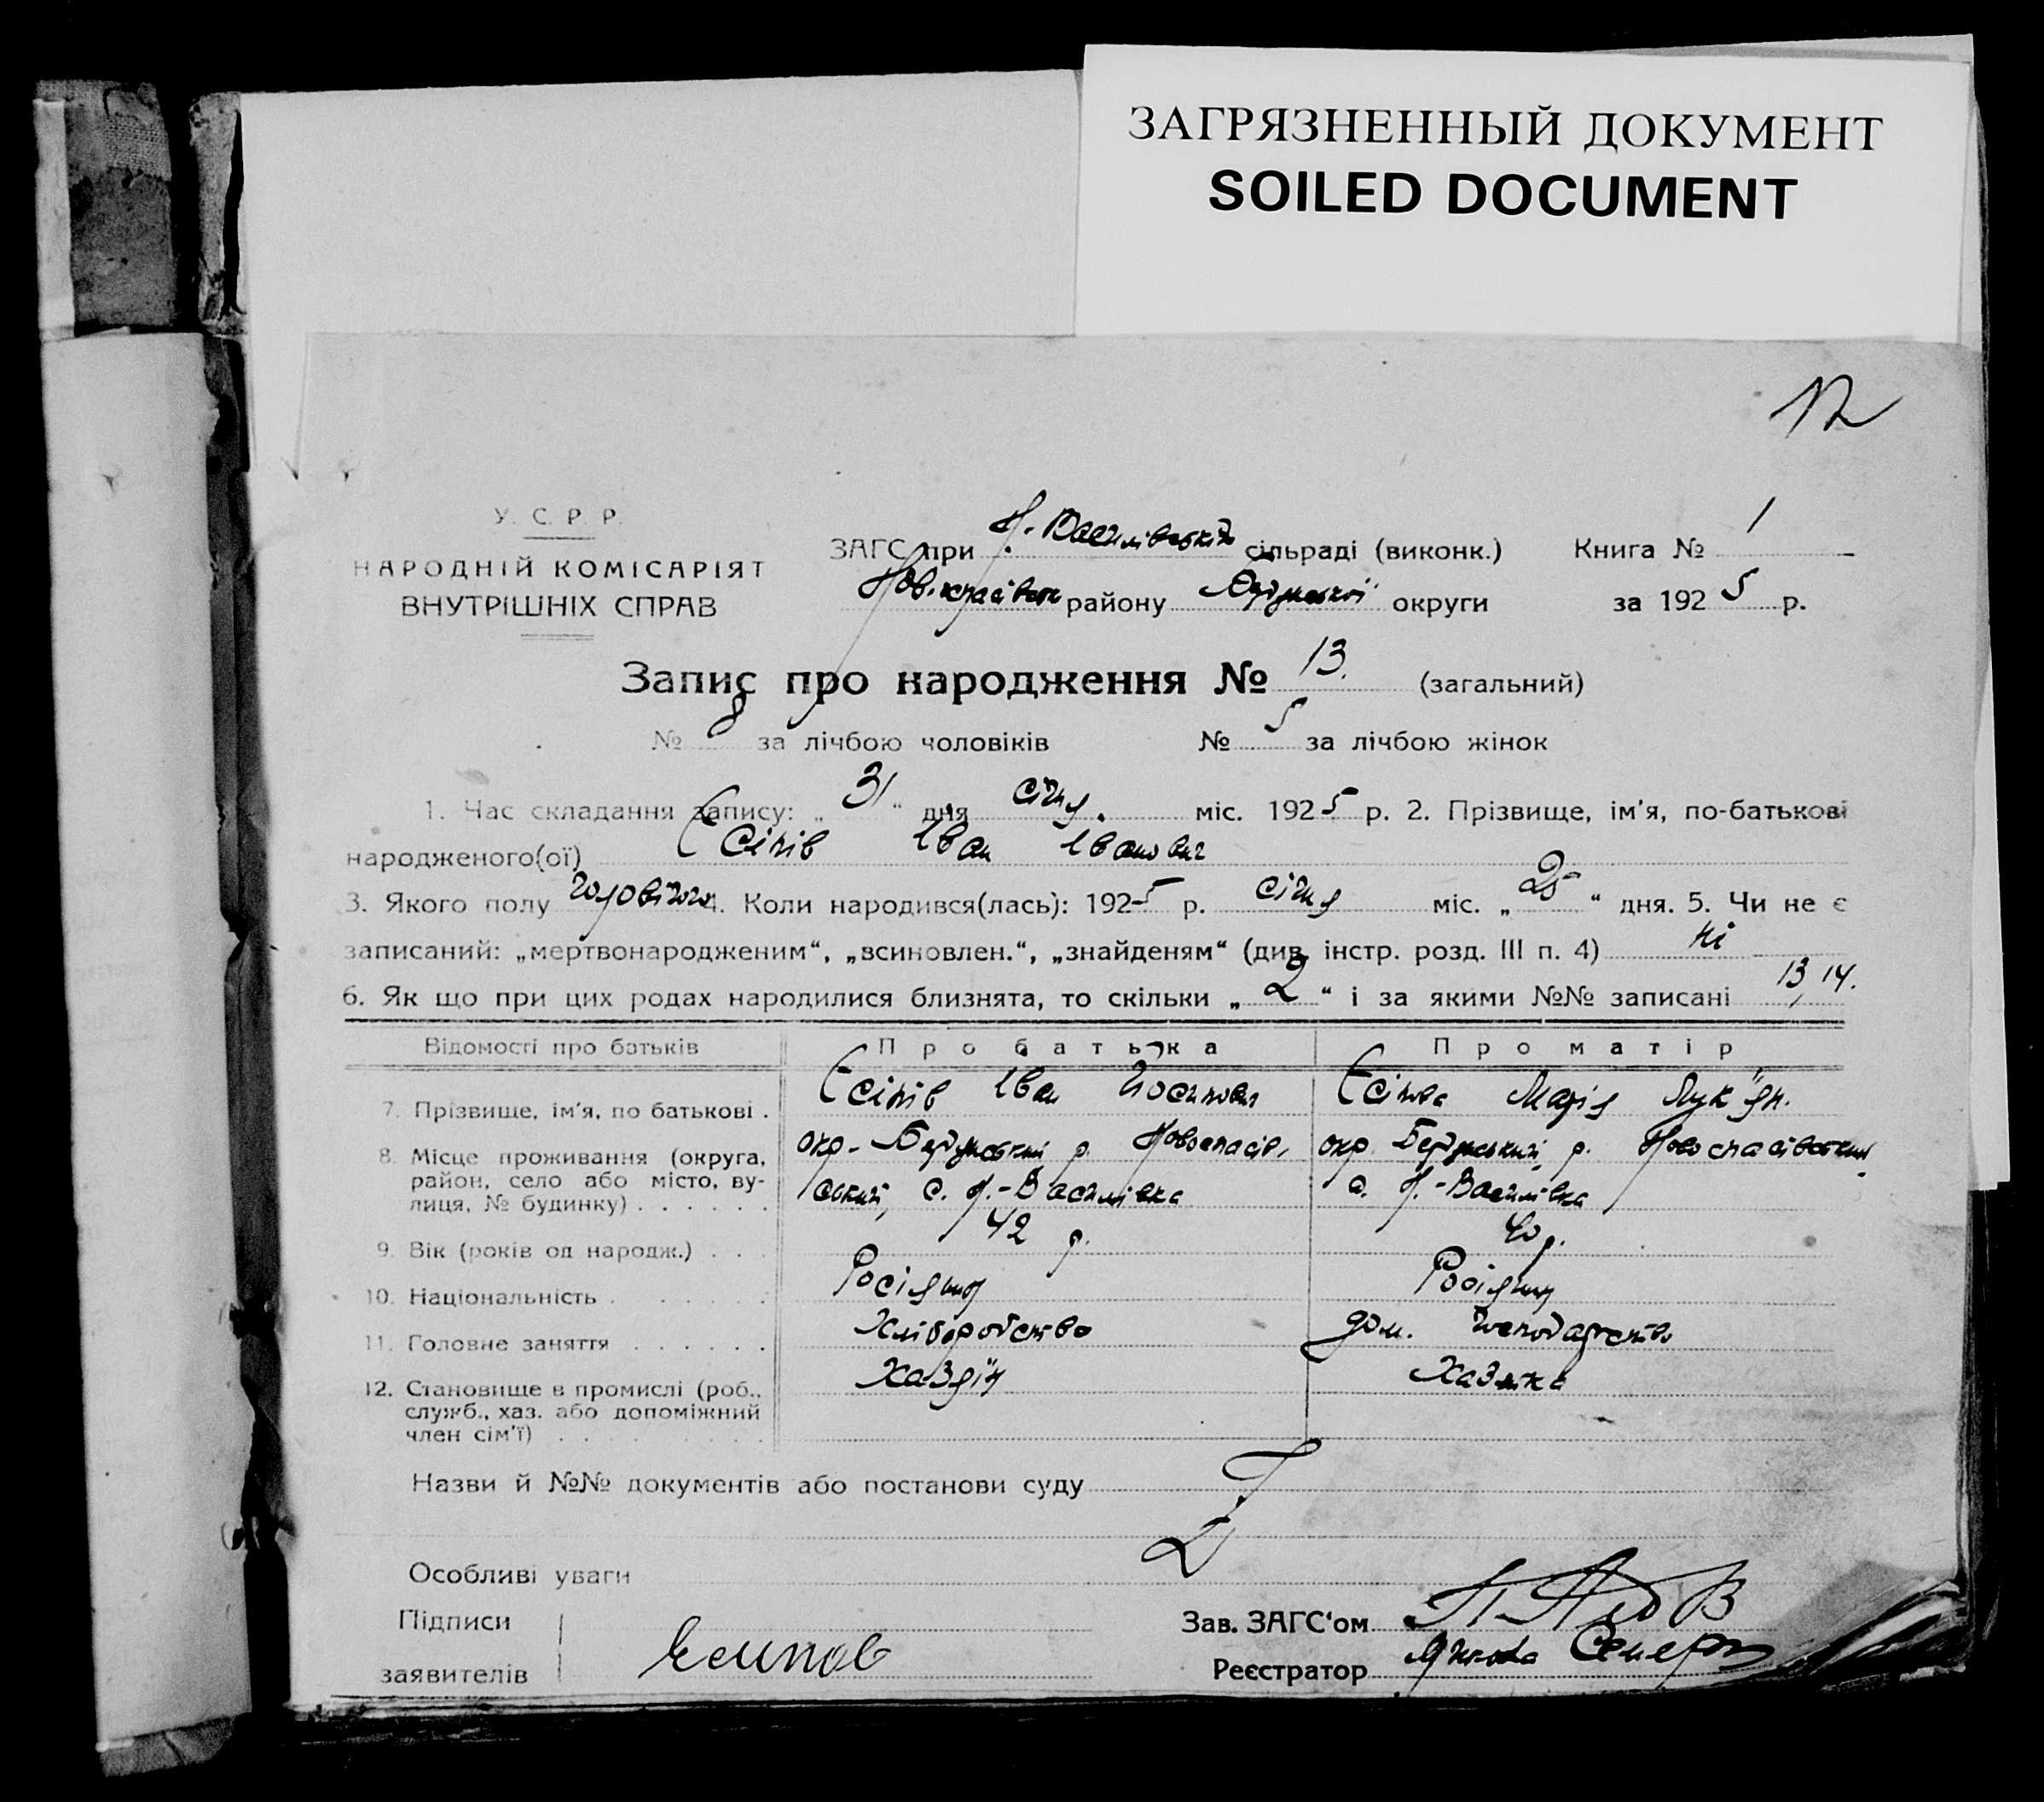 ЗАГРЯЗНЕННЫЙ ДОКУМЕНТ
SOILED DOCUMENT
12
У. С. Р. Р.
НАРОДНІЙ КОМІСАРІЯТ
ВНУТРІШНІХ СПРАВ
ЗАГС при Н.-Василівській сільраді (виконк.) Книга № 1
району округи за 1925 р.
Запис про народження № 13. (загальний)
№ 8 за лічбою чоловіків № 5 за лічбою жінок
1. Час складання запису: „ 31 “ дня січня міс. 1925 р. 2. Прізвище, ім'я, по-батькові
народженого(ої) Єсіпів Іван Іванович
3. Якого полу чоловічого 4. Коли народився(лась): 1925 р. січня міс. „ 25 “ дня. 5. Чи не є
записаний: „мертвонародженим“, „всиновлен.“, „знайденям“ (див. інстр. розд. III п. 4) ні
6. Як що при цих родах народилися близнята, то скільки „ 2 “ і за якими №№ записані 13, 14.
Відомості про батьків Про батька Про матір
7. Прізвище, ім'я, по батькові . Єсіпів Іван Йосипович Єсіпова Марія Лук'ян.
8. Місце проживання (округа, окр. Бердянський р. Новоспасів- окр. Бердянський, р. Новоспасівський
район, село або місто, ву- ський, с. Н.-Василівка с. Н.-Василівка
лиця, № будинку) . . . . . .
9. Вік (років од народж.) . . . 42 р. 40 р.
10. Національність . . . . . . Росіянин Росіянин
11. Головне заняття . . . . . . Хліборобство дом. господарство
12. Становище в промислі (роб., Хазяїн Хазяйка
служб., хаз. або допоміжний
член сім'ї) . . . . . . .
Назви й №№ документів або постанови суду
Особливі уваги
Підписи
Зав. ЗАГС'ом
заявителів Есипов
Реєстратор